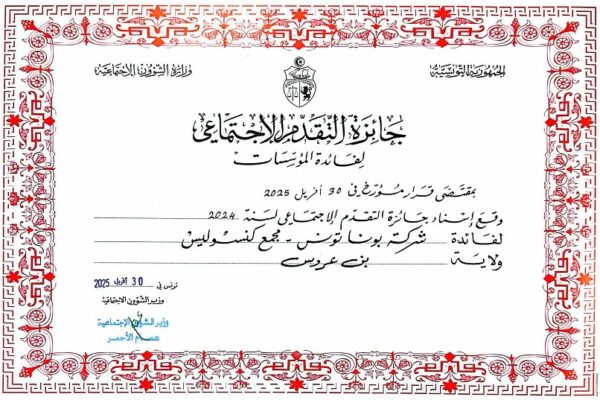 الجمهورية التونسية
وزارة الشؤون الاجتماعية
جائزة التقدم الاجتماعي
لفائدة المؤسسات
بمقتضى قرار مؤرخ في 30 أفريل 2025
وقع إسناد جائزة التقدم الاجتماعي لسنة 2024
لفائدة شركة بونا تونس - مجمع كنسوليس
ولاية بن عروس
تونس في 30 أفريل 2025
وزير الشؤون الاجتماعية
وزير الشؤون الاجتماعية
عصام الأحمر